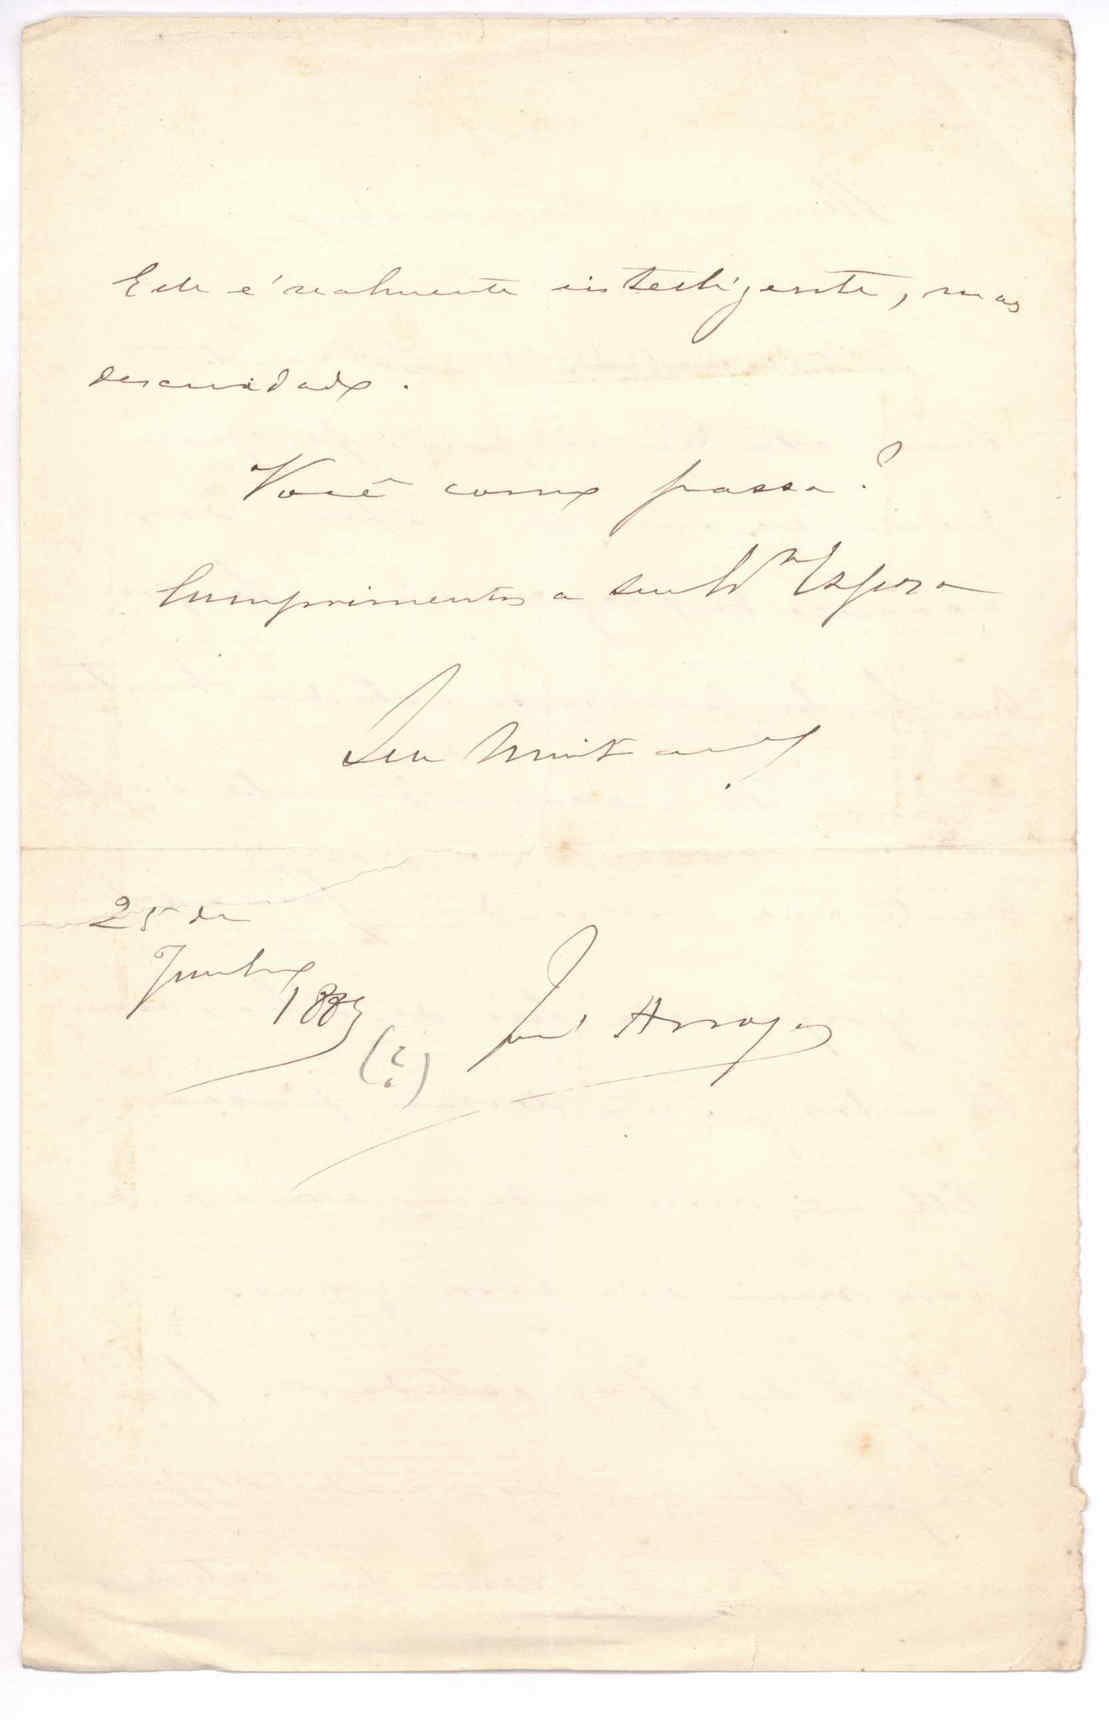 Este é realmente intelligente, mas
descuidado.
Você como passa?
Cumprimentos a sua Espoza
Seu Muito am.º
25 de
Junho
1889
(?)
José Arroyo